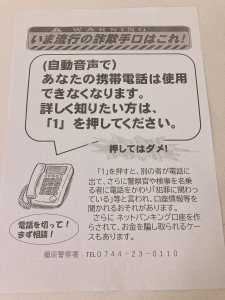 WARNING
いま流行の詐欺手口はこれ!
(自動音声で)
あなたの携帯電話は使用
できなくなります。
詳しく知りたい方は、
「1」を押してください。
押してはダメ!
「1」を押すと、別の者が電話に
出て、さらに警察官や検事を名乗
る者に電話をかわり「犯罪に関わっ
ている」等と言われ、口座情報等を
聞かれるおそれがあります。
さらに ネットバンキング口座を作
らされて、お金を騙し取られるケー
スもあります。
電話を切って!
まず相談!
橿原警察署 TEL0744-23-0110